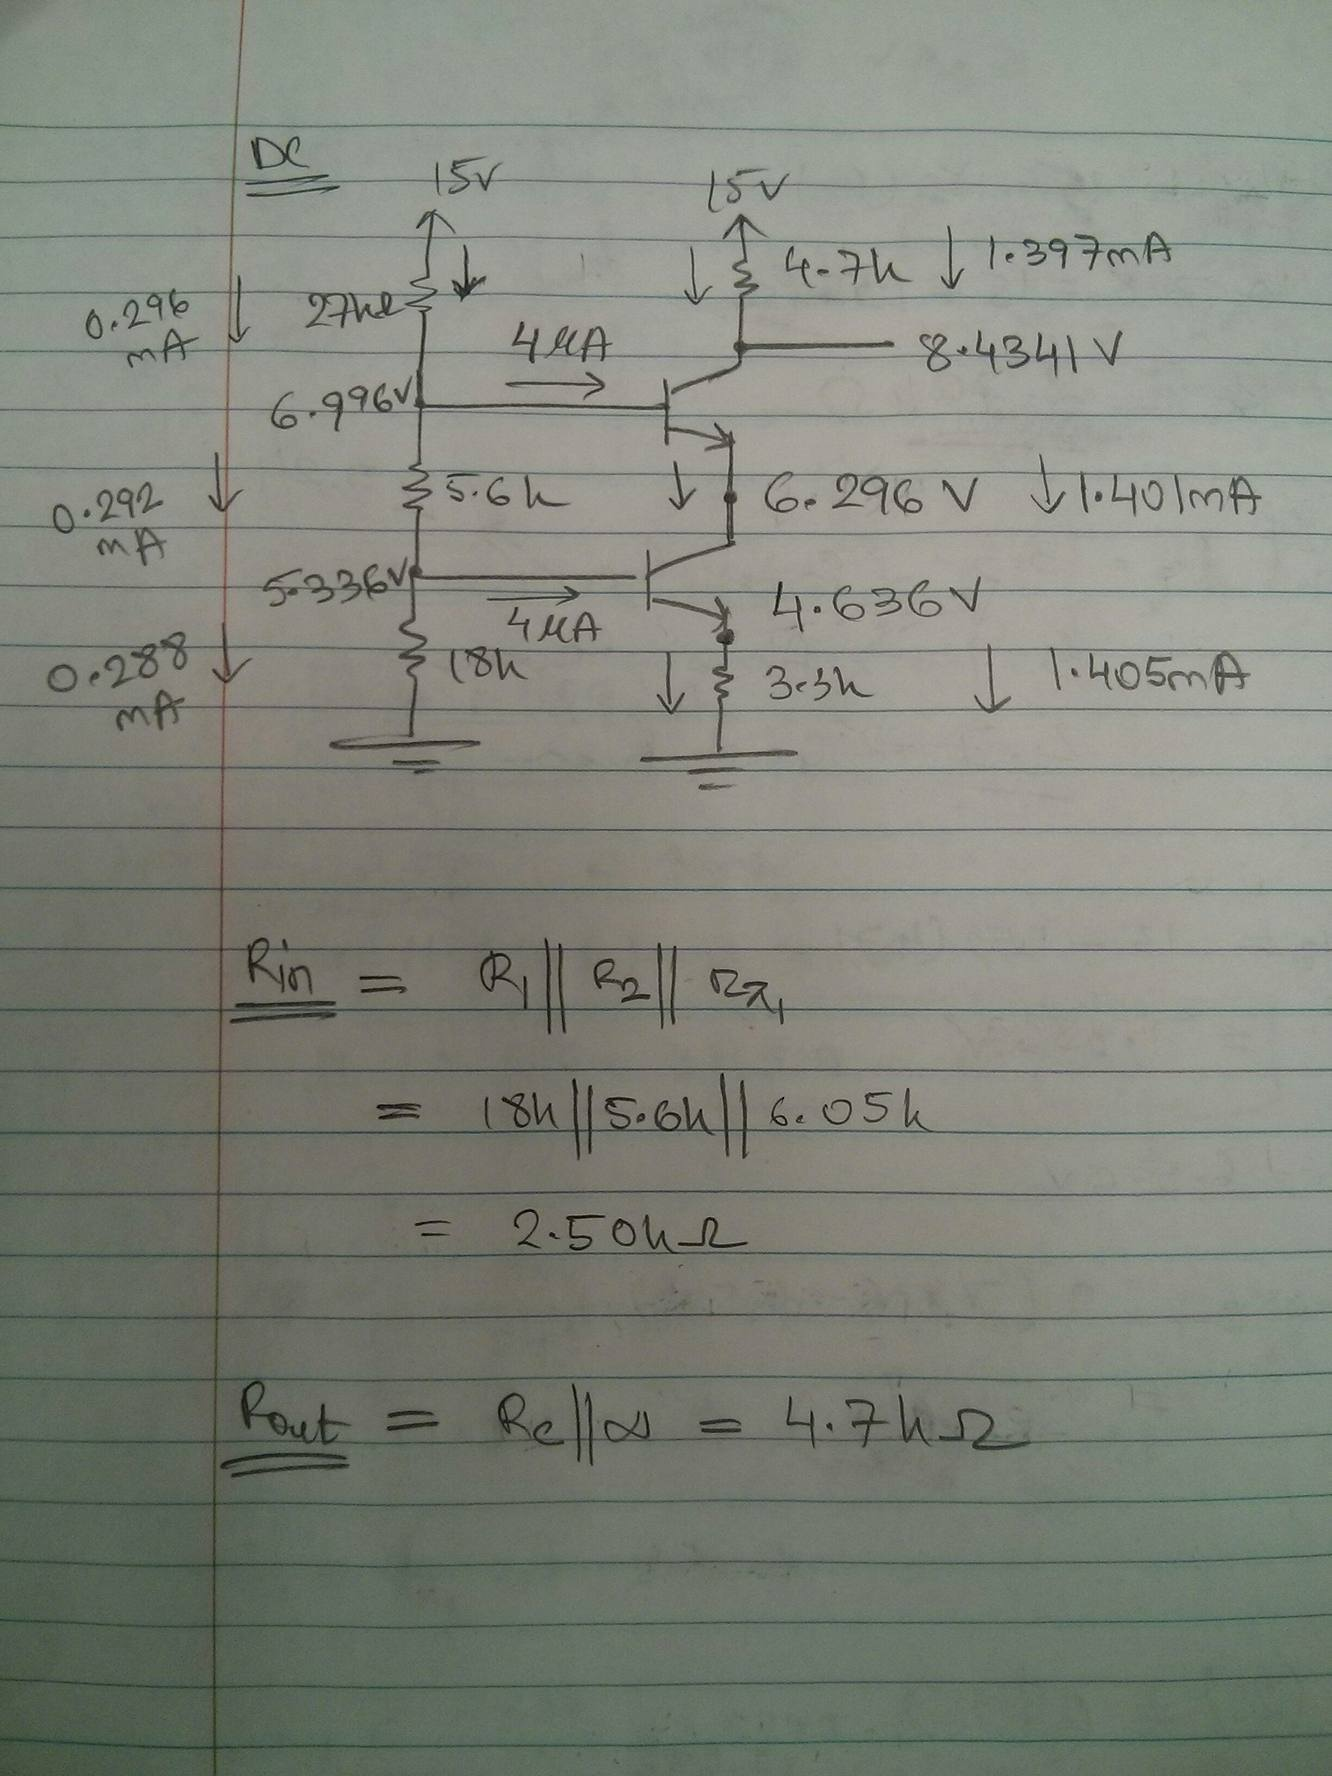 DC
15V 15V
4.7k 1.397mA
0.296 mA 27kΩ
4μA 8.4341V
6.996V
0.292 mA 5.6k 6.296V 1.401mA
5.336V 4.636V
4μA
0.288 mA 18k 3.3k 1.405mA
Rin = R1 || R2 || Rπ1
= 18k || 5.6k || 6.05k
= 2.50kΩ
Rout = Rc || ∞ = 4.7kΩ